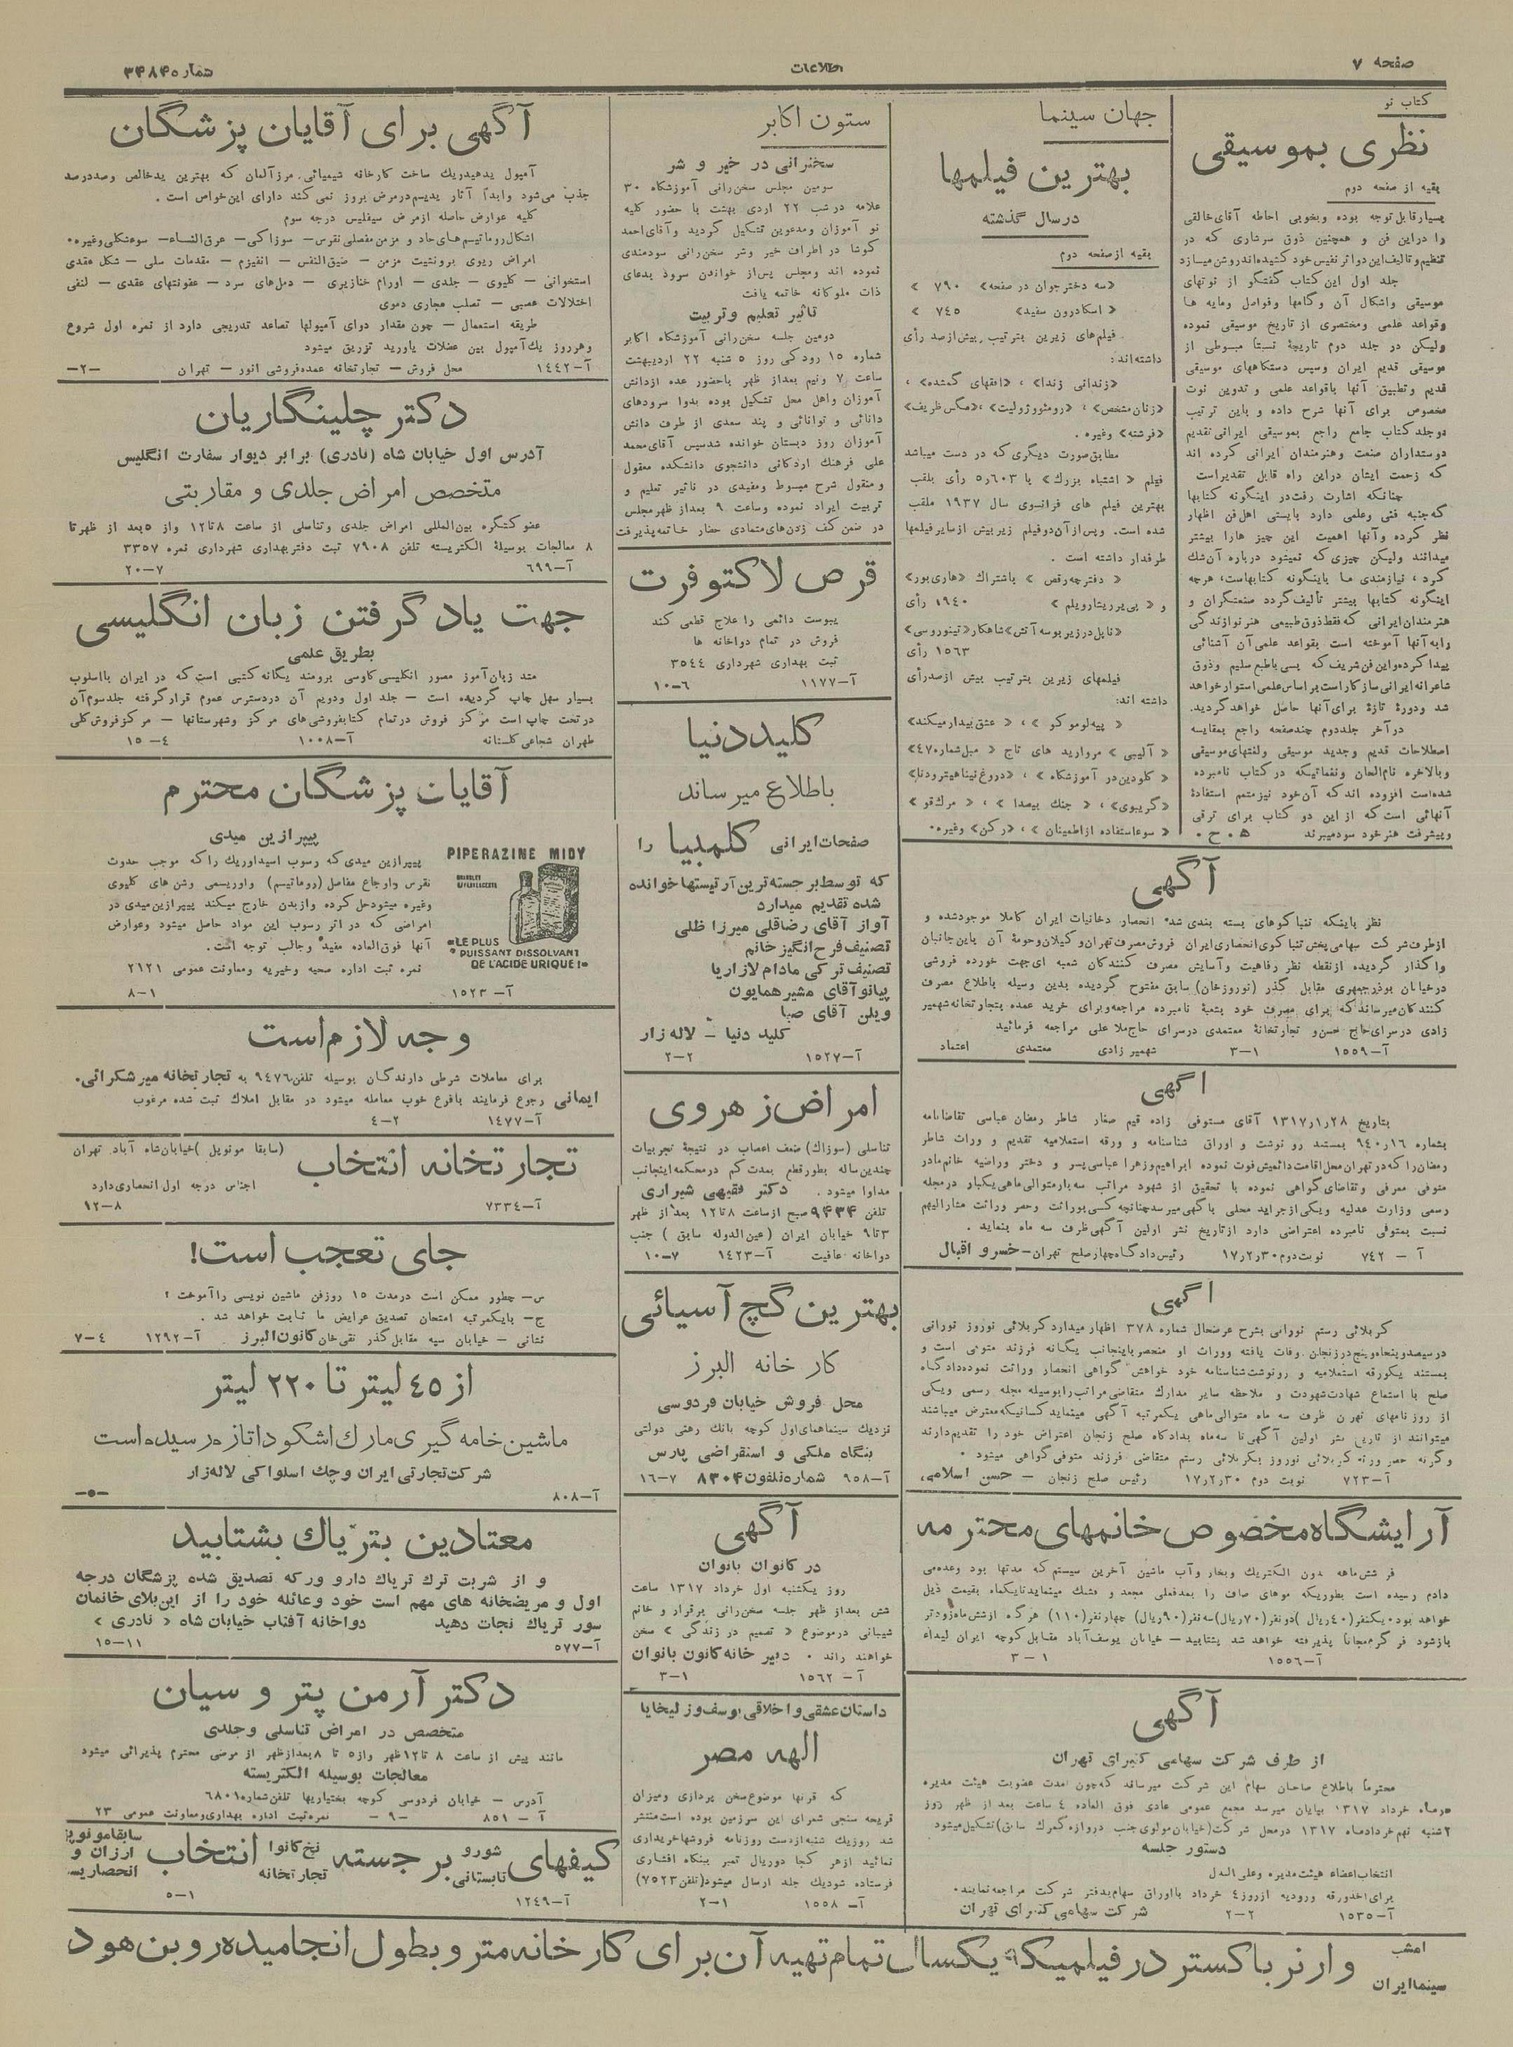 صفحه ۷
اطلاعات
شماره ۳۴۸۴
کتاب نو
نظری بموسیقی
بقیه از صفحه دوم
بسیار قابل توجه بوده و بخوبی احاطه آقای خالقی
را در این فن و همچنین ذوق سرشاری که در
تنظیم و تالیف این دو اثر نفیس خود کشیده‌اند روشن میسازد
جلد اول این کتاب گفتگو از نوتهای
موسیقی واشکال آن و گامها وفواصل ومایه ها
وقواعد علمی ومختصری از تاریخ موسیقی نموده
ولیکن در جلد دوم تاریخهٔ نسبتاً مبسوطی از
موسیقی قدیم ایران وسپس دستگاههای موسیقی
قدیم وتطبیق آنها باقواعد علمی و تدوین نوت
مخصوص برای آنها شرح داده و باین ترتیب
دو جلد کتاب جامع راجع بموسیقی ایرانی تقدیم
دوستداران صنعت وهنرمندان ایرانی کرده اند
که زحمت ایشان دراین راه قابل تقدیراست
چنانکه اشارت رفت در اینگونه کتابها
که جنبه فنی وعلمی دارد بایستی اهل فن اظهار
نظر کرده وآنها اهمیت این چیز هارا بیشتر
میدانند ولیکن چیزی که نمیشود درباره آن شك
کرد ، نیازمندی ما باینگونه کتابهاست، هرچه
اینگونه کتابها بیشتر تألیف گردد صنعتگران و
هنرمندان ایرانی که فقط ذوق طبیعی هنر نوازندگی
رابه آنها آموخته است بقواعد علمی آن آشنائی
پیدا کرده واین فن شریف که بسی باطبع سلیم وذوق
شاعرانه ایرانی سازگار است براساس علمی استوار خواهد
شد ودورهٔ تازهٔ برای آنها حاصل خواهد گردید.
در آخر جلد دوم چند صفحه راجع بمقایسه
اصطلاحات قدیم وجدید موسیقی ولغتهای موسیقی
وبالاخره نام الحان ونغماتیکه در کتاب نامبرده
شده است افزوده اند که آن خود نیز متمم استفادهٔ
آنهائی است که از این دو کتاب برای ترقی
وپیشرفت هنر خود سود میبرند ۵۰ح۰
جهان سینما
بهترین فیلمها
در سال گذشته
بقیه از صفحه دوم
«سه دختر جوان در صفحه» ۷۹۰ »
« اسکادرون سفید» ۷٤٥ »
فیلم‌های زیرین بترتیب بیش از صد رأی
داشته‌اند:
«زندانی زندا» ، «افقهای گمشده» ،
«زنان متشخص» ، «رومئو وژولیت» ، «مگس ظریف»
«فرشته» وغیره .
مطابق صورت دیگری که در دست میباشد
فیلم « اشتباه بزرگ» با ٥٫٦۰۳ رأی بلقب
بهترین فیلم های فرانسوی سال ۱۹۳۷ ملقب
شده است. وپس از آن دو فیلم زیر بیش از سایر فیلمها
طرفدار داشته است .
« دفترچه رقص » باشتراك «هاری بور»
و « پی‌یر ریشار ویلم » ۱۹٤۰ رأی
«ناپل در زیر بوسه آتش» شاهکار «تینوروسی»
۱٥٦۳ رأی
فیلمهای زیرین بترتیب بیش از صد رأی
داشته اند:
« پپه لوموکو »، « عشق بیدار میکند»
« آلیبی » مروارید های تاج « مبل شماره ٤۷۰»
« کلودین در آموزشگاه » ، «دروغ نینا پترودنا»
«گریبوی» ، « جنك بیصدا » ، « مرك قو »
« سوءاستفاده از اطمینان » ، «رکن» وغیره.
آگهی
نظر باینکه تنباکوهای بسته بندی شده انحصار دخانیات ایران کاملا موجود شده و
از طرف شرکت سهامی پخش تنباکوی انحصاری ایران فروش مصرف تهران و گیلان وحومهٔ آن باین جانبان
واگذار گردیده از نقطه نظر رفاهیت وآسایش مصرف کنندگان شعبه ای جهت خورده فروشی
در خیابان بوذرجمهری مقابل گذر (نوروزخان) سابق مفتوح گردیده بدین وسیله باطلاع مصرف
کنندگان میرساند که برای مصرف خود بشعبهٔ نامبرده مراجعه وبرای خرید عمده بتجارتخانه شهمیر
زادی در سرای حاج حسن و تجارتخانهٔ معتمدی در سرای حاج ملا علی مراجعه فرمائید
آ-۱٥٥۹ ۳-۱ شهمیر زادی معتمدی اعتماد
آگهی
بتاریخ ۱۳۱۷٫۱٫۲۸ آقای مستوفی زاده قیم صغار شاطر رمضان عباسی تقاضانامه
بشماره ۹٤۰٫۱٦ بمستند رو نوشت و اوراق شناسنامه و ورقه استعلامیه تقدیم و وراث شاطر
رمضان را که در تهران محل اقامت دائمیش فوت نموده ابراهیم وزهرا عباسی پسر و دختر وراضیه خانم مادر
متوفی معرفی وتقاضای گواهی نموده با تحقیق از شهود مراتب سه بار متوالی ماهی یکبار در مجله
رسمی وزارت عدلیه ویکی از جراید محلی باگهی میرسد چنانچه کسی بوراثت وحصر وراثت مشارالیهم
نسبت بمتوفی نامبرده اعتراضی دارد از تاریخ نشر اولین آگهی ظرف سه ماه بنماید .
آ - ۷٤۲ نوبت دوم ۱۷٫۲٫۳۰ رئیس دادگاه چهار صلح تهران-خسرو اقبال
آگهی
کربلائی رستم نورانی بشرح عرضحال شماره ۳۷۸ اظهار میدارد کربلائی نوروز نورانی
در سیصد و پنجاه و پنج در زنجان وفات یافته ووراث او منحصر باینجانب یگانه فرزند متوفی است و
بمستند یکورقه استعلامیه و رونوشت شناسنامه خود خواهش گواهی انحصار وراثت نموده دادگاه
صلح با استماع شهادت شهود و ملاحظه سایر مدارك متقاضی مراتب را بوسیله مجله رسمی ویکی
از روزنامهای تهران ظرف سه ماه متوالی ماهی یکمرتبه آگهی مینماید کسانیکه معترض میباشند
میتوانند از تاریخ نشر اولین آگهی تا سه ماه بدادگاه صلح زنجان اعتراض خود را تقدیم دارند
وگرنه حصر ورثه کربلائی نوروز بکربلائی رستم متقاضی فرزند متوفی گواهی میشود .
آ-۷۲۳ نوبت دوم ۱۷٫۲٫۳۰ رئیس صلح زنجان - حسن اسلامی
آرایشگاه مخصوص خانمهای محترمه
فر شش ماهه بدون الکتریك وبخار وآب ماشین آخرین سیستم که مدتها بود وعده می
دادم رسیده است بطوریکه موهای صاف را بمد فعلی مجعد و قشنك مینماید تا یکماه بقیمت ذیل
خواهد بود. یکنفر (٤۰ ریال) دو نفر (۷۰ ریال) سه نفر (۹۰ ریال) چهار نفر (۱۱۰) هرگاه از شش ماه زودتر
باز شود فر گرم مجاناً پذیرفته خواهد شد بشتابید- خیابان یوسف آباد مقابل کوچه ایران لیدا،
آ-۱٥٥٦ ۳-۱
آگهی
از طرف شرکت سهامی کتیرای تهران
محترماً باطلاع صاحبان سهام این شرکت میرساند که چون مدت عضویت هیئت مدیره
در ماه خرداد ۱۳۱۷ بپایان میرسد مجمع عمومی عادی فوق العاده ٤ ساعت بعد از ظهر روز
۲شنبه نهم خردادماه ۱۳۱۷ در محل شرکت (خیابان مولوی جنب دروازه گمرك سابق) تشکیل میشود
دستور جلسه
انتخاب اعضاء هیئت مدیره وعلی البدل
برای اخذ ورقه ورودیه از روز ٤ خرداد بااوراق سهام بدفتر شرکت مراجعه نمایند.
آ-۱٥۳٥ ۲-۲ شرکت سهامی کتیرای تهران
ستون اکابر
سخنرانی در خیر و شر
سومین مجلس سخن رانی آموزشگاه ۳۰
علامه در شب ۲۲ اردی بهشت با حضور کلیه
نو آموزان ومدعوین تشکیل گردید وآقای احمد
کوشا در اطراف خیر وشر سخن رانی سودمندی
نموده اند ومجلس پس از خواندن سرود بدعای
ذات ملوکانه خاتمه یافت
تاثیر تعلیم وتربیت
دومین جلسه سخن رانی آموزشگاه اکابر
شماره ۱٥ رودکی روز ٥ شنبه ۲۲ اردیبهشت
ساعت ۷ ونیم بعداز ظهر باحضور عده ازدانش
آموزان واهل محل تشکیل بوده بدوا سرودهای
دانائی و توانائی و پند سعدی از طرف دانش
آموزان روز دبستان خوانده شد سپس آقای محمد
علی فرهنك اردکانی دانشجوی دانشکده معقول
و منقول شرح مبسوط ومفیدی در تاثیر تعلیم و
تربیت ایراد نموده وساعت ۹ بعداز ظهر مجلس
در ضمن کف زدن‌های متمادی حضار خاتمه پذیرفت
قرص لاکتوفرت
یبوست دائمی را علاج قطعی کند
فروش در تمام دواخانه ها
ثبت بهداری شهرداری ۳٥٤٤
آ-۱۱۷۷ ۱۰-٦
کلید دنیا
باطلاع میرساند
صفحات ایرانی کلمبیا را
که توسط برجسته ترین آرتیستها خوانده
شده تقدیم میدارد
آواز آقای رضاقلی میرزا ظلی
تصنیف فرح انگیز خانم
تصنیف ترکی مادام لازاریا
پیانو آقای مشیر همایون
ویلن آقای صبا
کلید دنیا - لاله زار
آ-۱٥۲۷ ۲-۲
امراض زهروی
تناسلی (سوزاك) ضعف اعصاب در نتیجهٔ تجربیات
چندین ساله بطور قطع بمدت کم در محکمه اینجانب
مداوا میشود . دکتر فقیهی شیرازی
تلفن ۹۴۳۴ صبح از ساعت ۸ تا ۱۲ بعد از ظهر
۳ تا ۹ خیابان ایران (عین الدوله سابق ) جنب
دواخانه عافیت آ-۱٤۲۳ ۱۰-۷
بهترین گچ آسیائی
کارخانه البرز
محل فروش خیابان فردوسی
نزدیك سینماهای اول کوچه بانك رهنی دولتی
بنگاه ملکی و استقراضی پارس
آ-۹٥۸ شماره تلفون ۸۳۰۴ ۱٦-۷
آگهی
در کانوان بانوان
روز یکشنبه اول خرداد ۱۳۱۷ ساعت
شش بعداز ظهر جلسه سخن رانی برقرار و خانم
شیبانی در موضوع « تصمیم در زندگی » سخن
خواهند راند . دبیر خانه کانون بانوان
آ- ۱٥٦۲ ۳-۱
داستان عشقی و اخلاقی یوسف و زلیخا یا
الهه مصر
که قرنها موضوع سخن پردازی ومیزان
قریحه سنجی شعرای این سرزمین بوده است منتشر
شد روز یك شنبه از دست روزنامه فروشها خریداری
نمائید از هر کجا دو ریال تمبر ببنگاه افشاری
فرستاده شود یك جلد ارسال میشود (تلفن ۷٥۲۳)
آ- ۱٥٥۸ ۲-۱
آگهی برای آقایان پزشگان
آمپول یدهیدریك ساخت کارخانه شیمیائی مرز آلمان که بهترین یدخالص وصددرصد
جذب می‌شود وابداً آثار یدیسم درمرض بروز نمی‌کند دارای این خواص است .
کلیه عوارض حاصله از مرض سیفلیس درجه سوم
اشکال روماتیسم‌های حاد و مزمن مفصلی نقرس - سوزاکی - عرق النساء - سوءشکلی وغیره.
امراض ریوی برونشیت مزمن - ضیق النفس - آنفیزم - مقدمات سلی - شکل عقدی
استخوانی - کلیوی - جلدی - اورام خنازیری - دمل‌های سرد - عفونتهای عقدی - لنفی
اختلالات عصبی - تصلب مجاری دموی
طریقه استعمال - چون مقدار دوای آمپولها تصاعد تدریجی دارد از نمره اول شروع
وهر روز یك آمپول بین عضلات یاورید تزریق میشود
آ-۱٤٤۲ محل فروش - تجارتخانه عمده فروشی انور - تهران -۲-
دکتر چلینگاریان
آدرس اول خیابان شاه (نادری) برابر دیوار سفارت انگلیس
متخصص امراض جلدی و مقاربتی
عضو کنگره بین المللی امراض جلدی وتناسلی از ساعت ۸ تا ۱۲ واز ٥ بعد از ظهر تا
۸ معالجات بوسیلهٔ الکتریسته تلفن ۷۹۰۸ ثبت دفتر بهداری شهرداری نمره ۳۳٥۷
آ-٦۹۹ ۲۰-۷
جهت یاد گرفتن زبان انگلیسی
بطریق علمی
متد زبان آموز مصور انگلیسی کاوسی برومند یگانه کتبی است که در ایران بااسلوب
بسیار سهل چاپ گردیده است - جلد اول ودویم آن دردسترس عموم قرار گرفته جلد سوم آن
در تحت چاپ است مرکز فروش در تمام کتابفروشی‌های مرکز وشهرستانها - مرکز فروش کلی
طهران شجاعی گلستانه آ-۱۰۰۸ ۱٥-٤
آقایان پزشگان محترم
پیپرازین میدی
PIPERAZINE MIDY
پیپرازین میدی که رسوب اسید اوریك را که موجب حدوث
نقرس واوجاع مفاصل (روماتیسم) واوریسمی وشن های کلیوی
وغیره میشود حل کرده واز بدن خارج میکند پیپرازین میدی در
امراضی که در اثر رسوب این مواد حاصل میشود وعوارض
آنها فوق العاده مفید و جالب توجه است.
نمره ثبت اداره صحیه وخیریه ومعاونت عمومی ۲۱۲۱
«LE PLUS
PUISSANT DISSOLVANT
DE L'ACIDE URIQUE!»
آ-۱٥۲۳ ۸-۱
وجه لازم است
برای معاملات شرطی دارندگان بوسیله تلفن ۹٤۷٦ به تجارتخانه میر شکرائی.
ایمانی رجوع فرمایند بافرع خوب معامله میشود در مقابل املاك ثبت شده مرغوب
آ-۱٤۷۷ ٤-۲
تجارتخانه انتخاب
(سابقا مونوپل) خیابان شاه آباد تهران
اجناس درجه اول انحصاری دارد
آ-۷۳۳٤ ۱۲-۸
جای تعجب است!
س- چطور ممکن است در مدت ۱٥ روز فن ماشین نویسی را آموخت ؟
ج- با یکمرتبه امتحان تصدیق عرایض ما ثابت خواهد شد .
نشانی - خیابان سپه مقابل گذر نقی خان کانون البرز آ-۱۲۹۲ ۷-٤
از ٤٥ لیتر تا ۲۲۰ لیتر
ماشین خامه گیری مارك اشکودا تازه رسیده است
شرکت تجارتی ایران و چك اسلواکی لاله زار
آ-۸۰۸ -٥-
معتادین بتریاك بشتابید
و از شربت ترك تریاك دارو ورکه تصدیق شده پزشگان درجه
اول و مریضخانه های مهم است خود و عائله خود را از این بلای خانمان
سوز تریاك نجات دهید دواخانه آفتاب خیابان شاه « نادری »
آ-٥۷۷ ۱٥-۱۱
دکتر آرمن پتروسیان
متخصص در امراض تناسلی وجلدی
مانند پیش از ساعت ۸ تا ۱۲ ظهر واز ٥ تا ۸ بعداز ظهر از مرضی محترم پذیرائی میشود
معالجات بوسیله الکتریسته
آدرس - خیابان فردوسی کوچه بختیاریها تلفن شماره ٦۸۰۱
آ - ۸٥۱ -۹- نمره ثبت اداره بهداری ومعاونت عمومی ۲۳
کیفهای شورو تابستانی برجسته نخ کانوا تجارتخانه انتخاب سابقا مونوپل ارزان و انحصاریست
آ-۱۲٤۹ ٥-۱
امشب
سینما ایران
وارنر باکستر در فیلمیکه یکسال تمام تهیه آن برای کارخانه متر و بطول انجامیده روبن هود